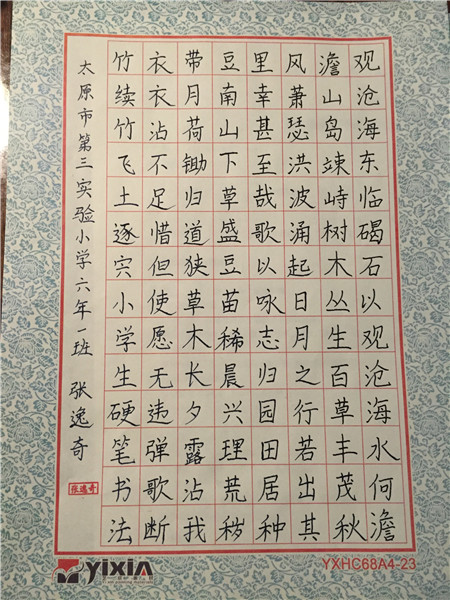 观沧海东临碣石以观沧海水何澹
澹山岛竦峙树木丛生百草丰茂秋
风萧瑟洪波涌起日月之行若出其
里幸甚至哉歌以咏志归园田居种
豆南山下草盛豆苗稀晨兴理荒秽
带月荷锄归道狭草木长夕露沾我
衣衣沾不足惜但使愿无违弹歌断
竹续竹飞土逐宍小学生硬笔书法
太原市第三实验小学六年一班 张逸奇
张逸奇
YXHC68A4-23